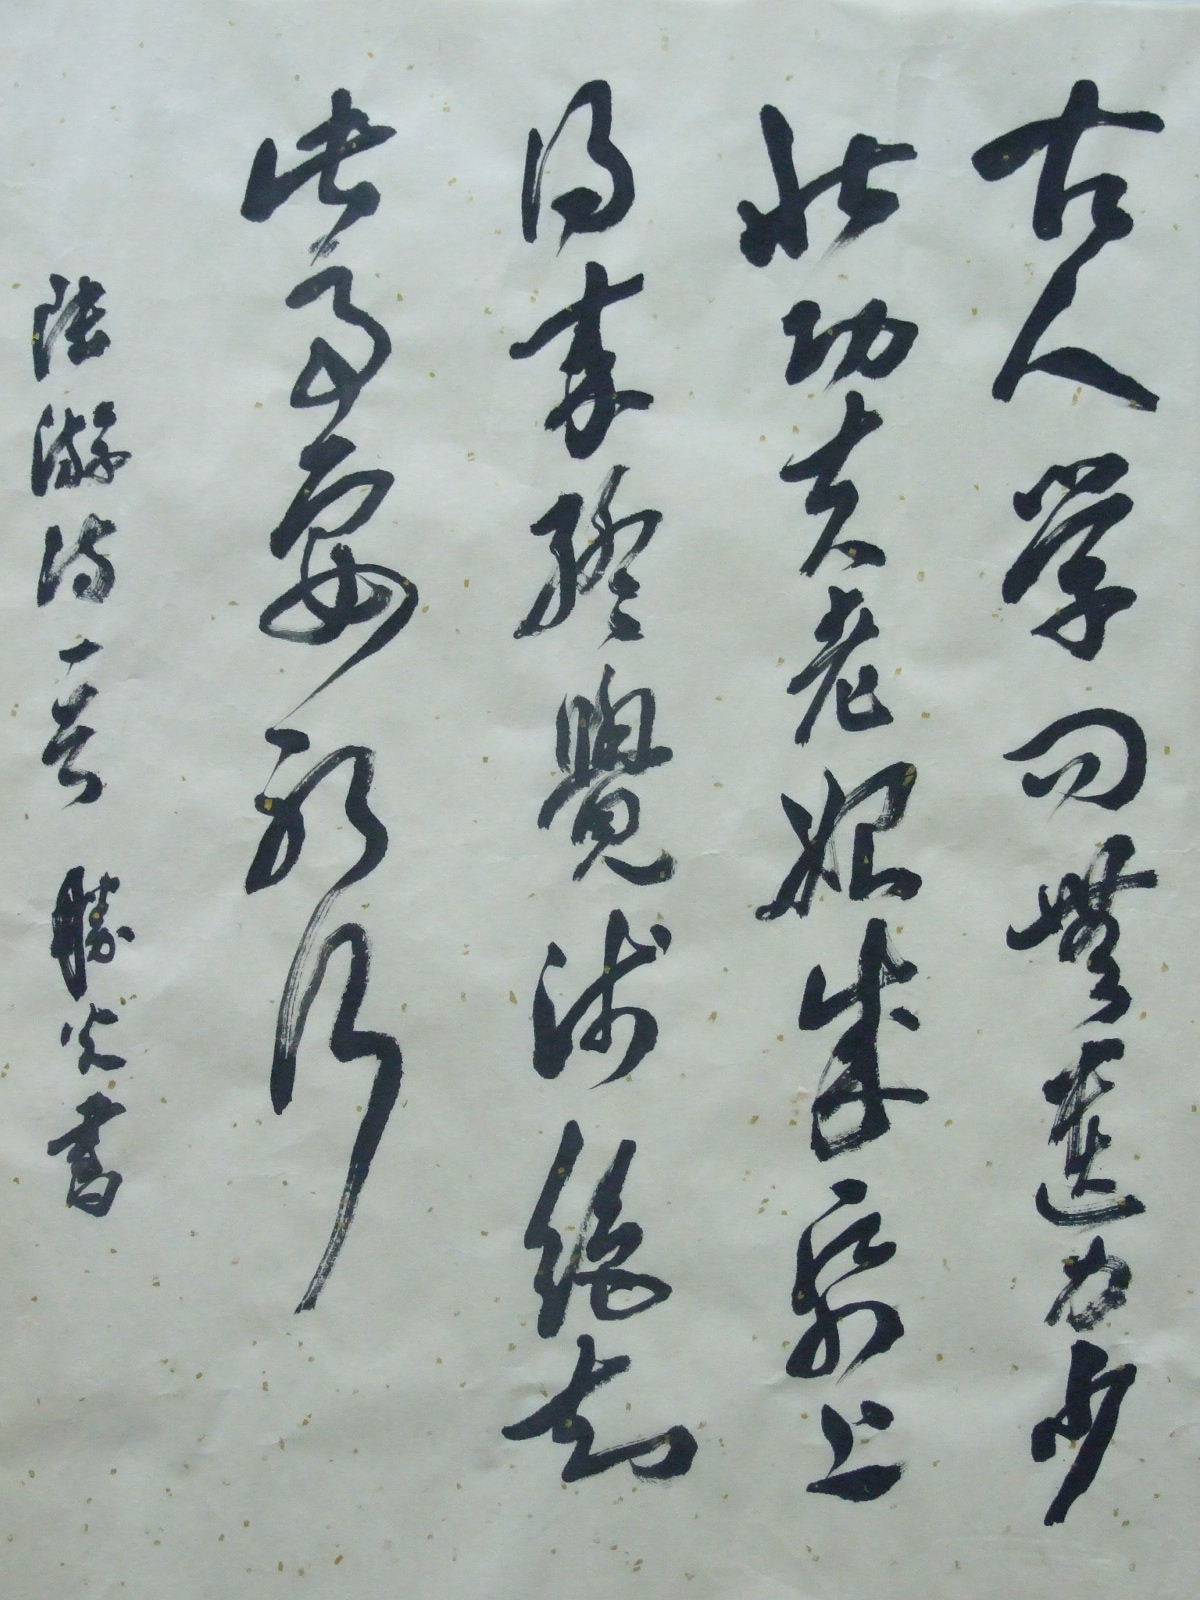 古人学问無遗力少
壮功夫老始成紙上
得来终覺浅绝知
此事要躬行
陆游诗一首 勝光書